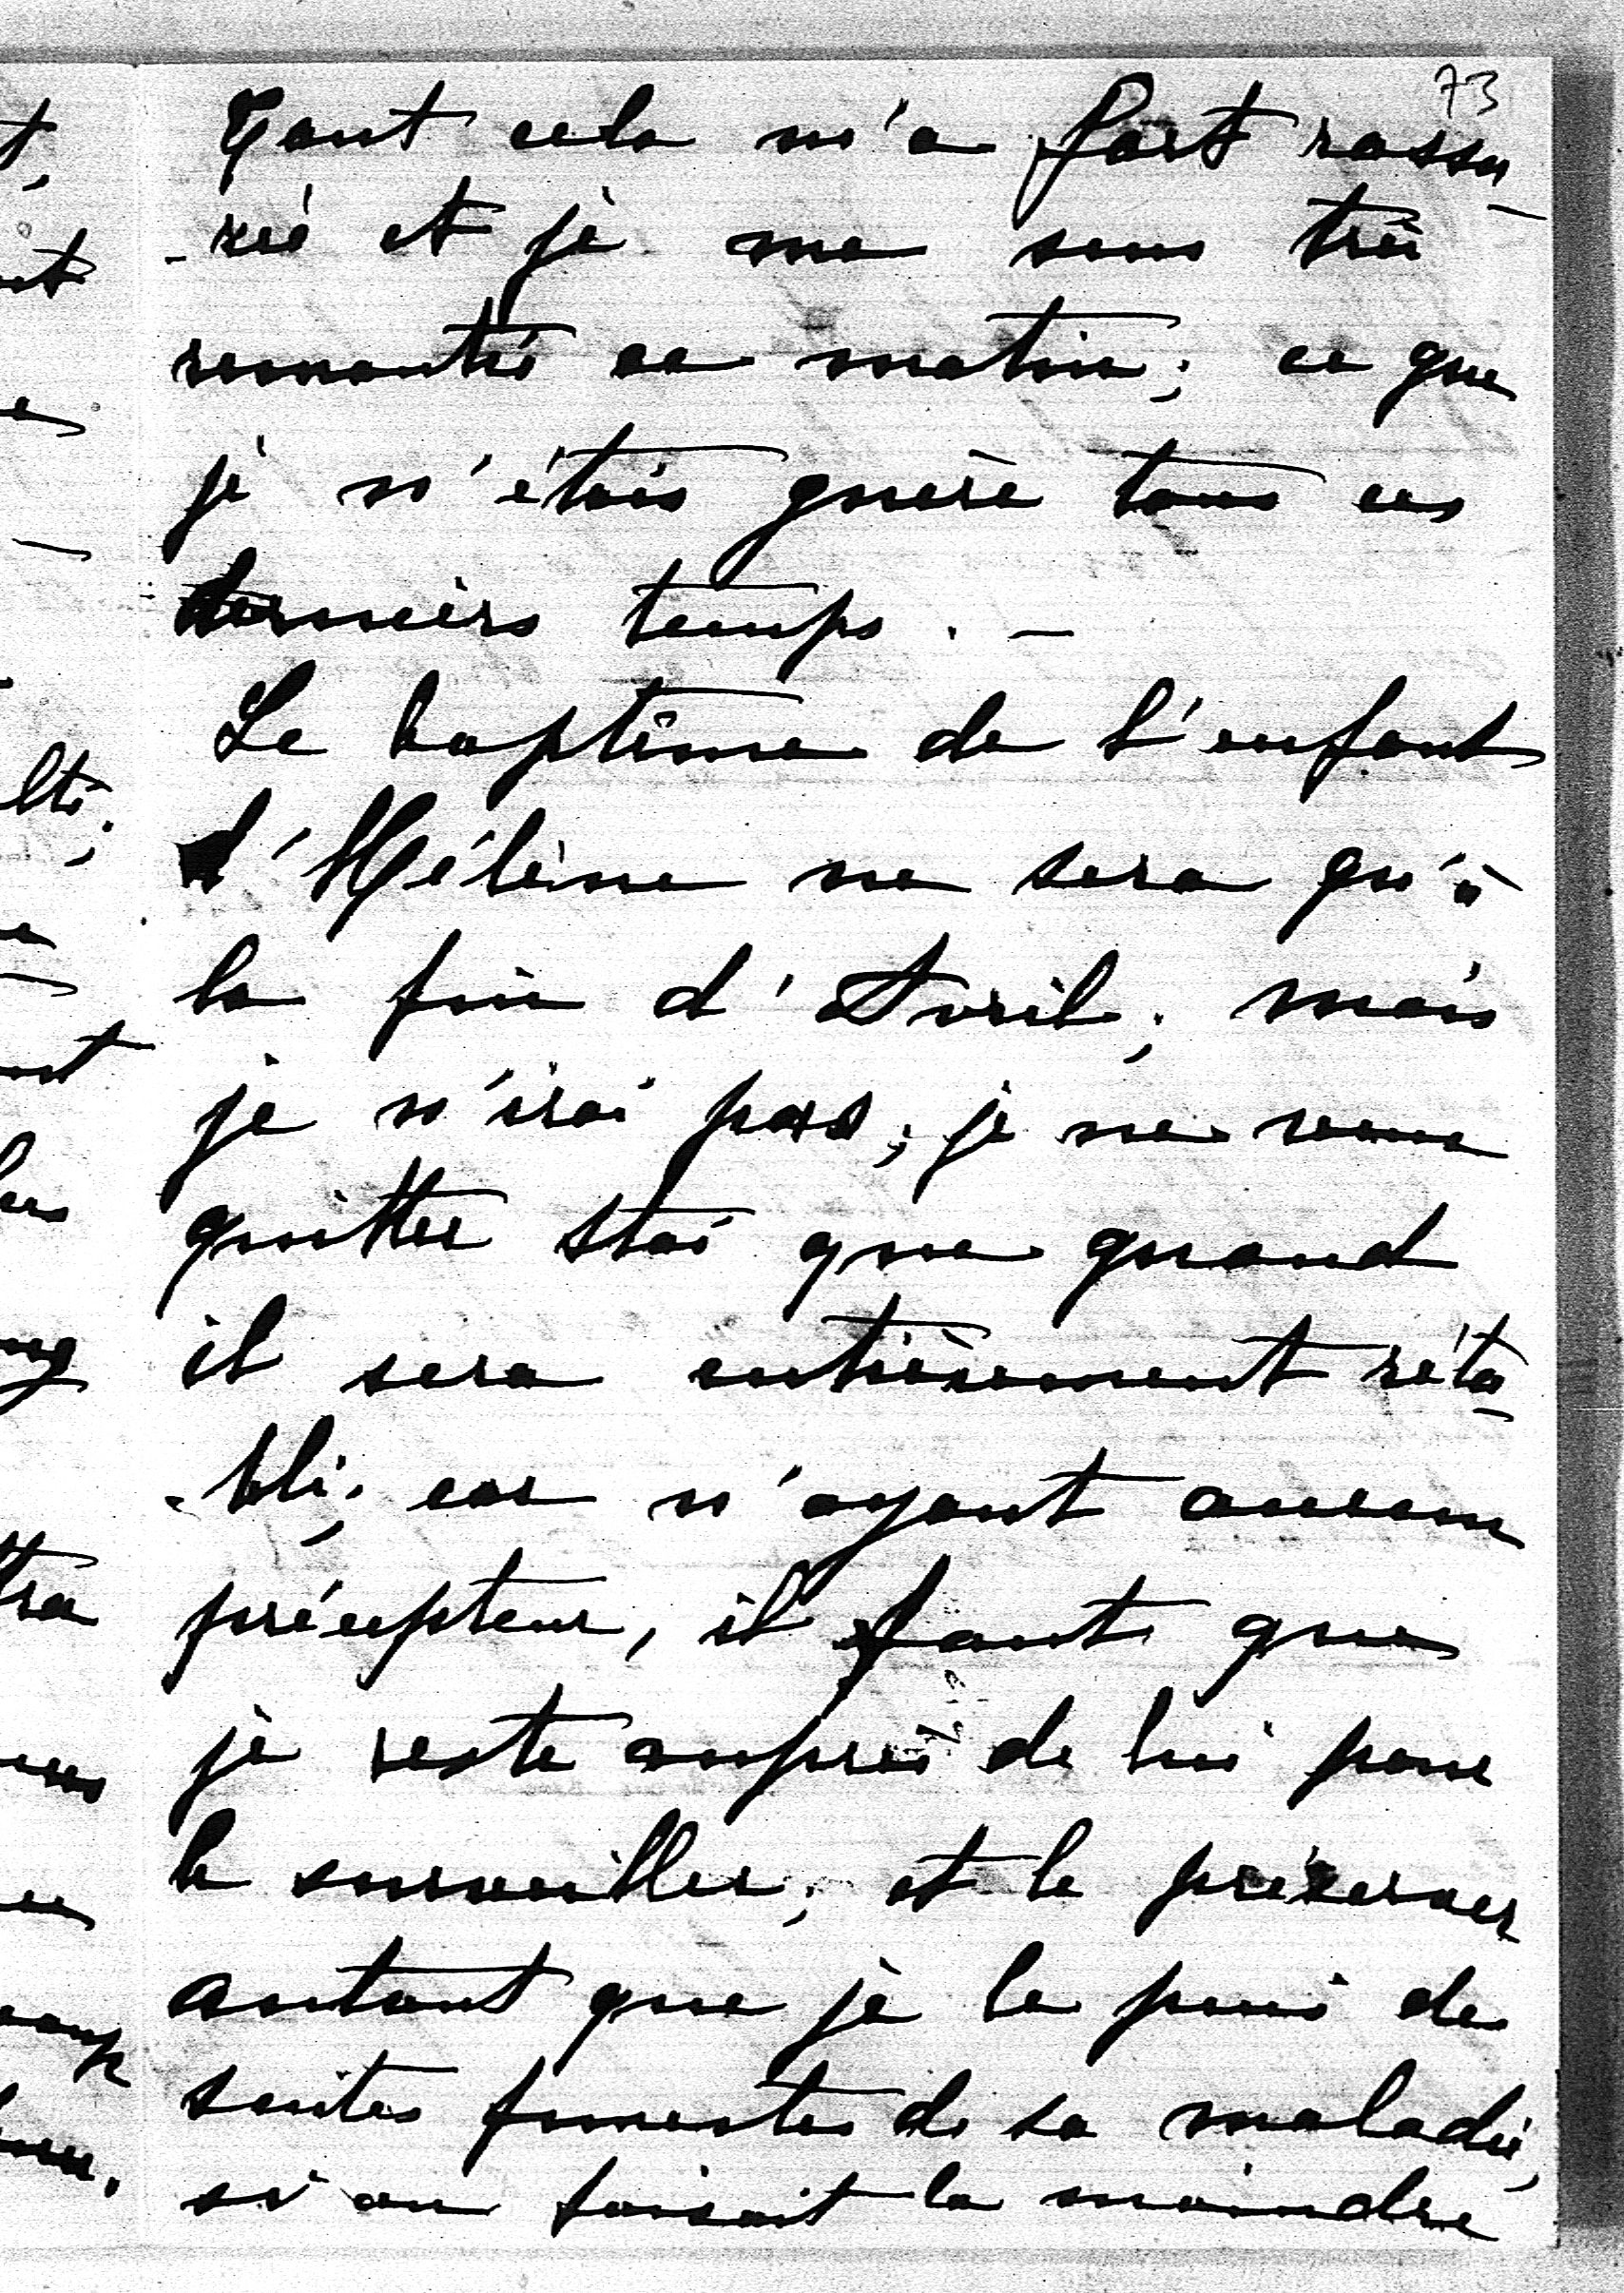 73
Tout cela m'a fort rassu-
-ré et je me sens très
remontée ce matin; ce que
je n'étais guère tous ces
derniers temps. -
Le baptême de l'enfant
d'Hélène ne sera qu'à
la fin d'Avril; mais
je n'irai pas; je ne veux
quitter Staï que quand
il sera entièrement réta-
-bli; car n'ayant aucun
précepteur, il faut que
je reste auprès de lui pour
le surveiller; et le préserver
autant que je le puis de
suites funestes de sa maladie,
si on faisait la moindre